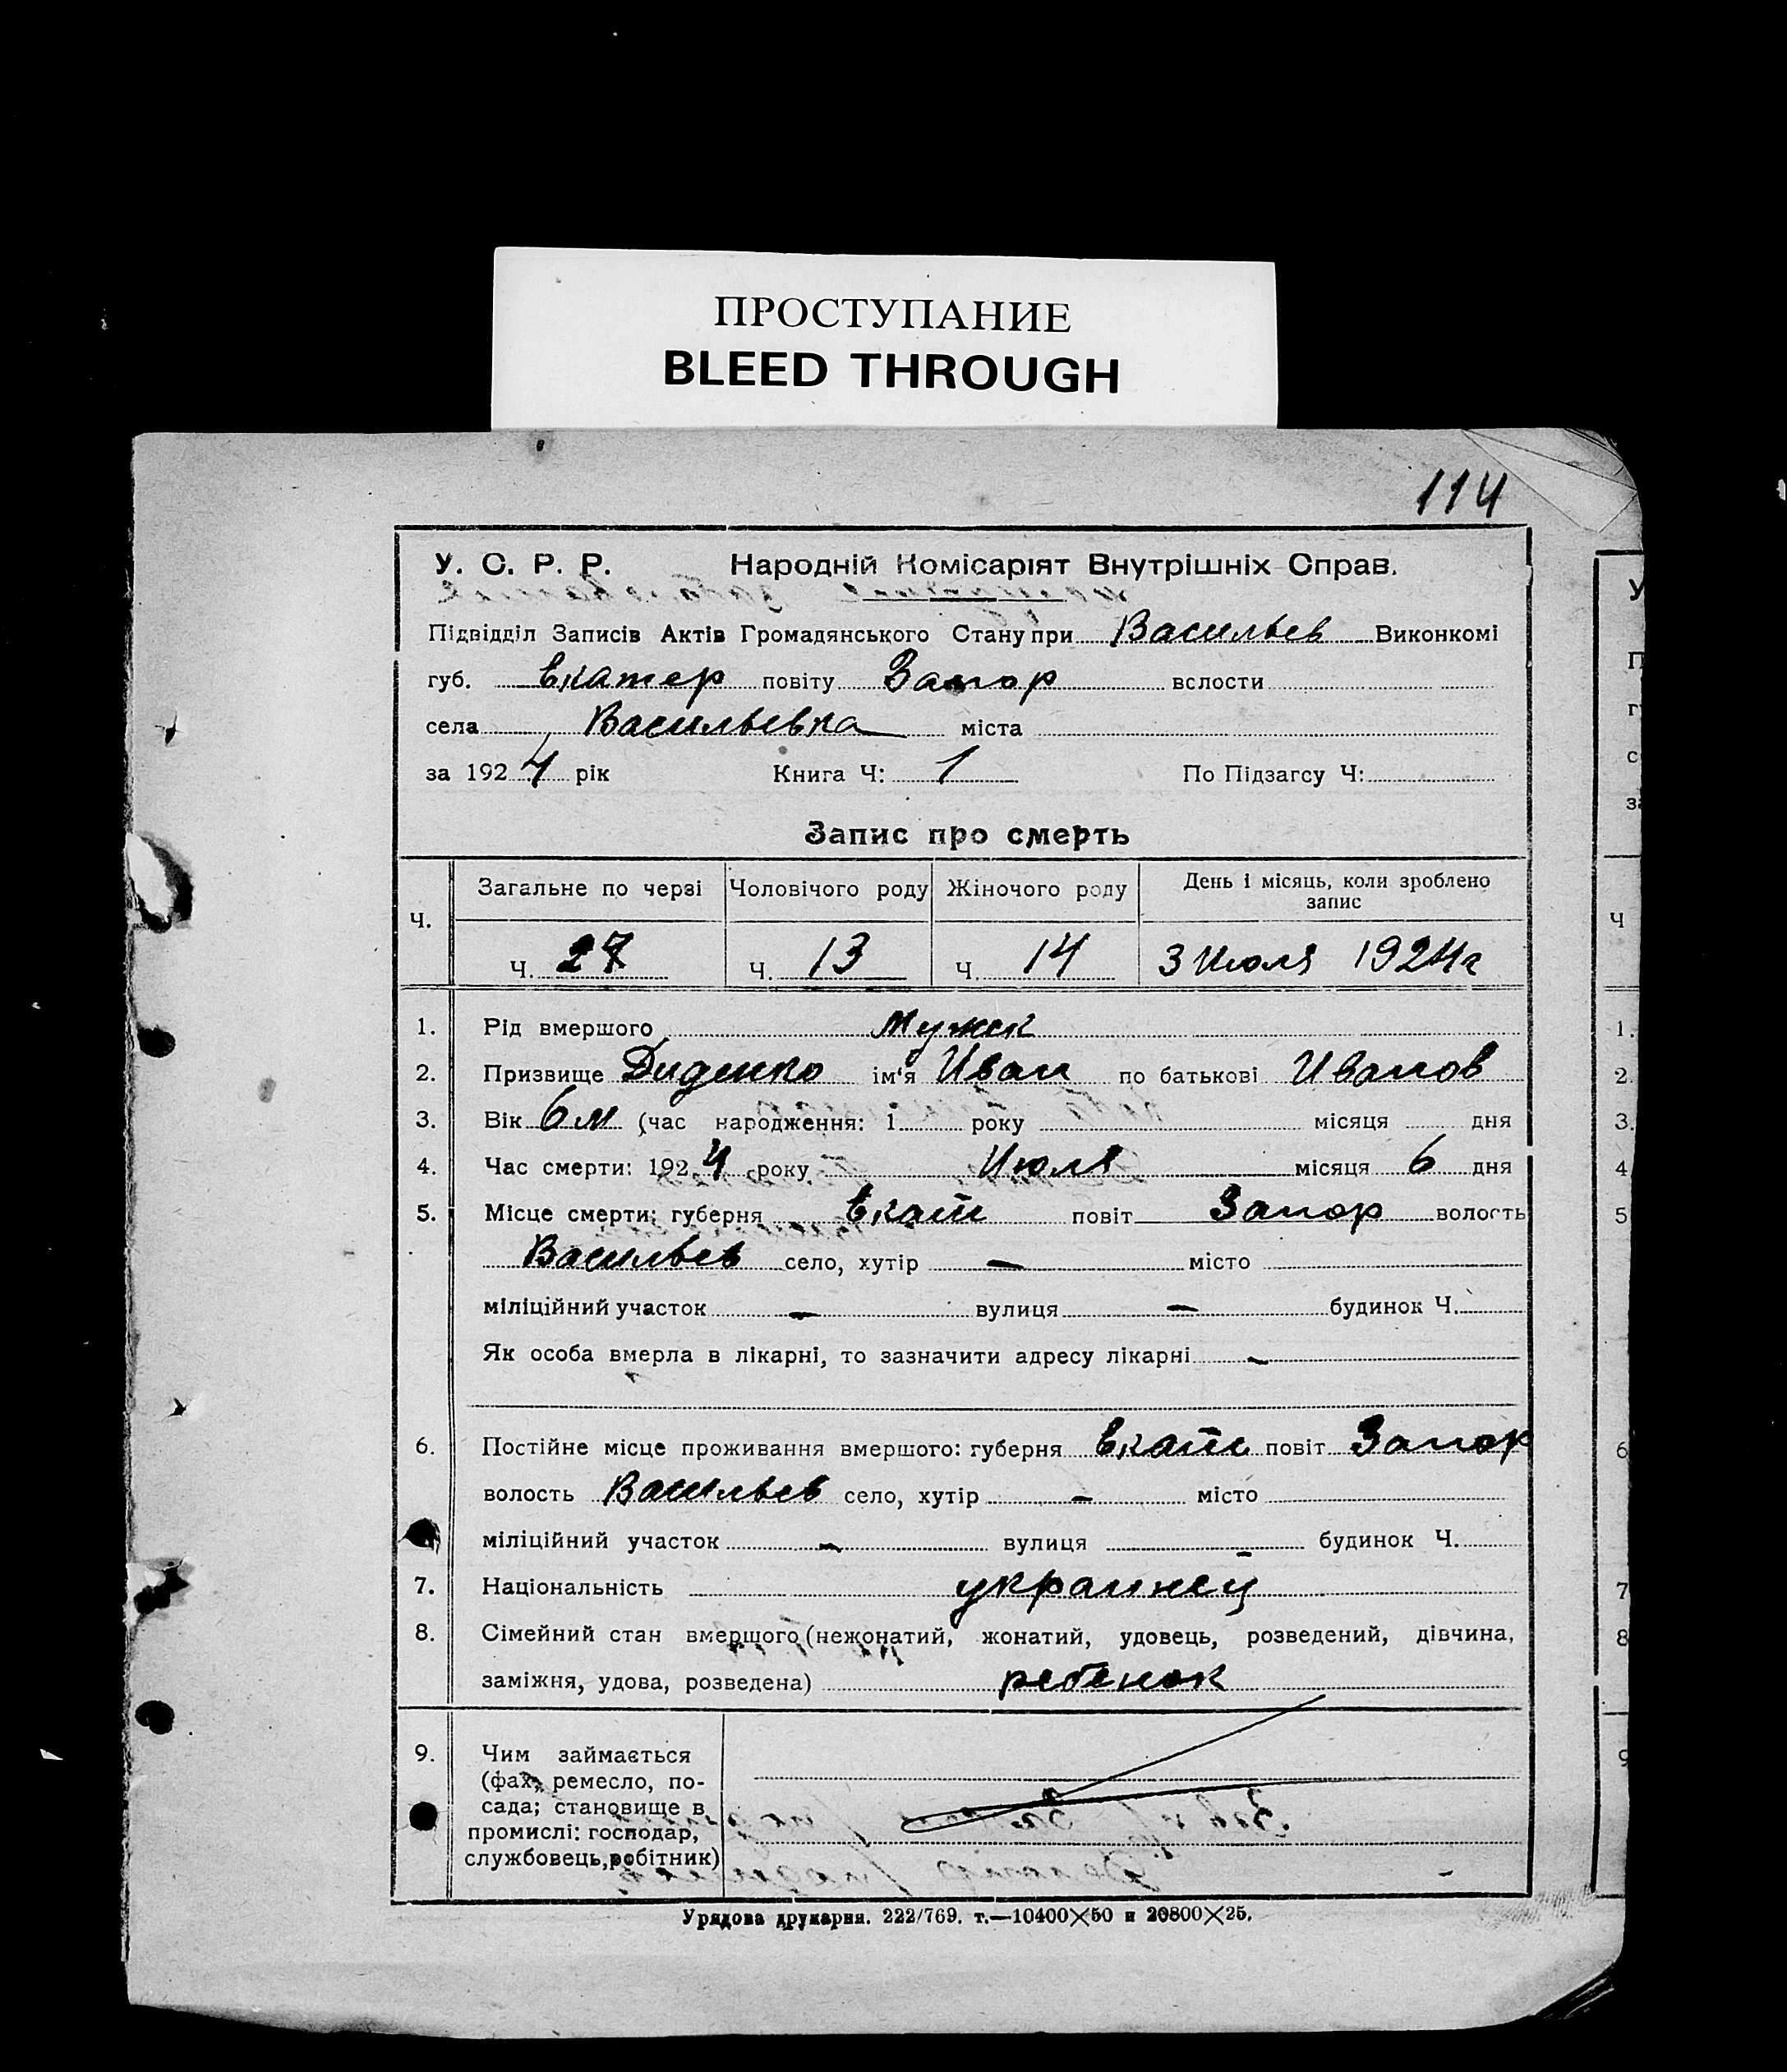 ПРОСТУПАНИЕ
BLEED THROUGH
114
У. С. Р. Р. Народній Комісаріят Внутрішніх Справ.
Підвідділ Записів Актів Громадянського Стану при Васильев Виконкомі
губ. Екатер повіту Запор вслости
села Васильевка міста
за 1924 рік Книга Ч: 1 По Підзагсу Ч:
Запис про смерть
Ч. Загальне по черзі Чоловічого роду Жіночого роду День і місяць, коли зроблено запис
Ч. 27 Ч. 13 Ч. 14 3 Июля 1924 г
1. Рід вмершого Мужск
2. Призвище Диденко ім'я Иван по батькові Иванов
3. Вік 6 м (час народження: 1 року місяця дня
4. Час смерти: 1924 року Июля місяця 6 дня
5. Місце смерти: губерня Екат повіт Запор волость
Васильев село, хутір — місто
міліційний участок — вулиця — будинок Ч.
Як особа вмерла в лікарні, то зазначити адресу лікарні —
6. Постійне місце проживання вмершого: губерня Екат повіт Запор
волость Васильев село, хутір — місто
міліційний участок — вулиця — будинок Ч.
7. Національність украинец
8. Сімейний стан вмершого (нежонатий, жонатий, удовець, розведений, дівчина,
заміжня, удова, розведена) ребенок
9. Чим займається
(фах, ремесло, по-
сада; становище в
промислі: господар,
службовець, робітник)
Урядова друкарня. 222/769. т.—10400×50 и 20800×25.